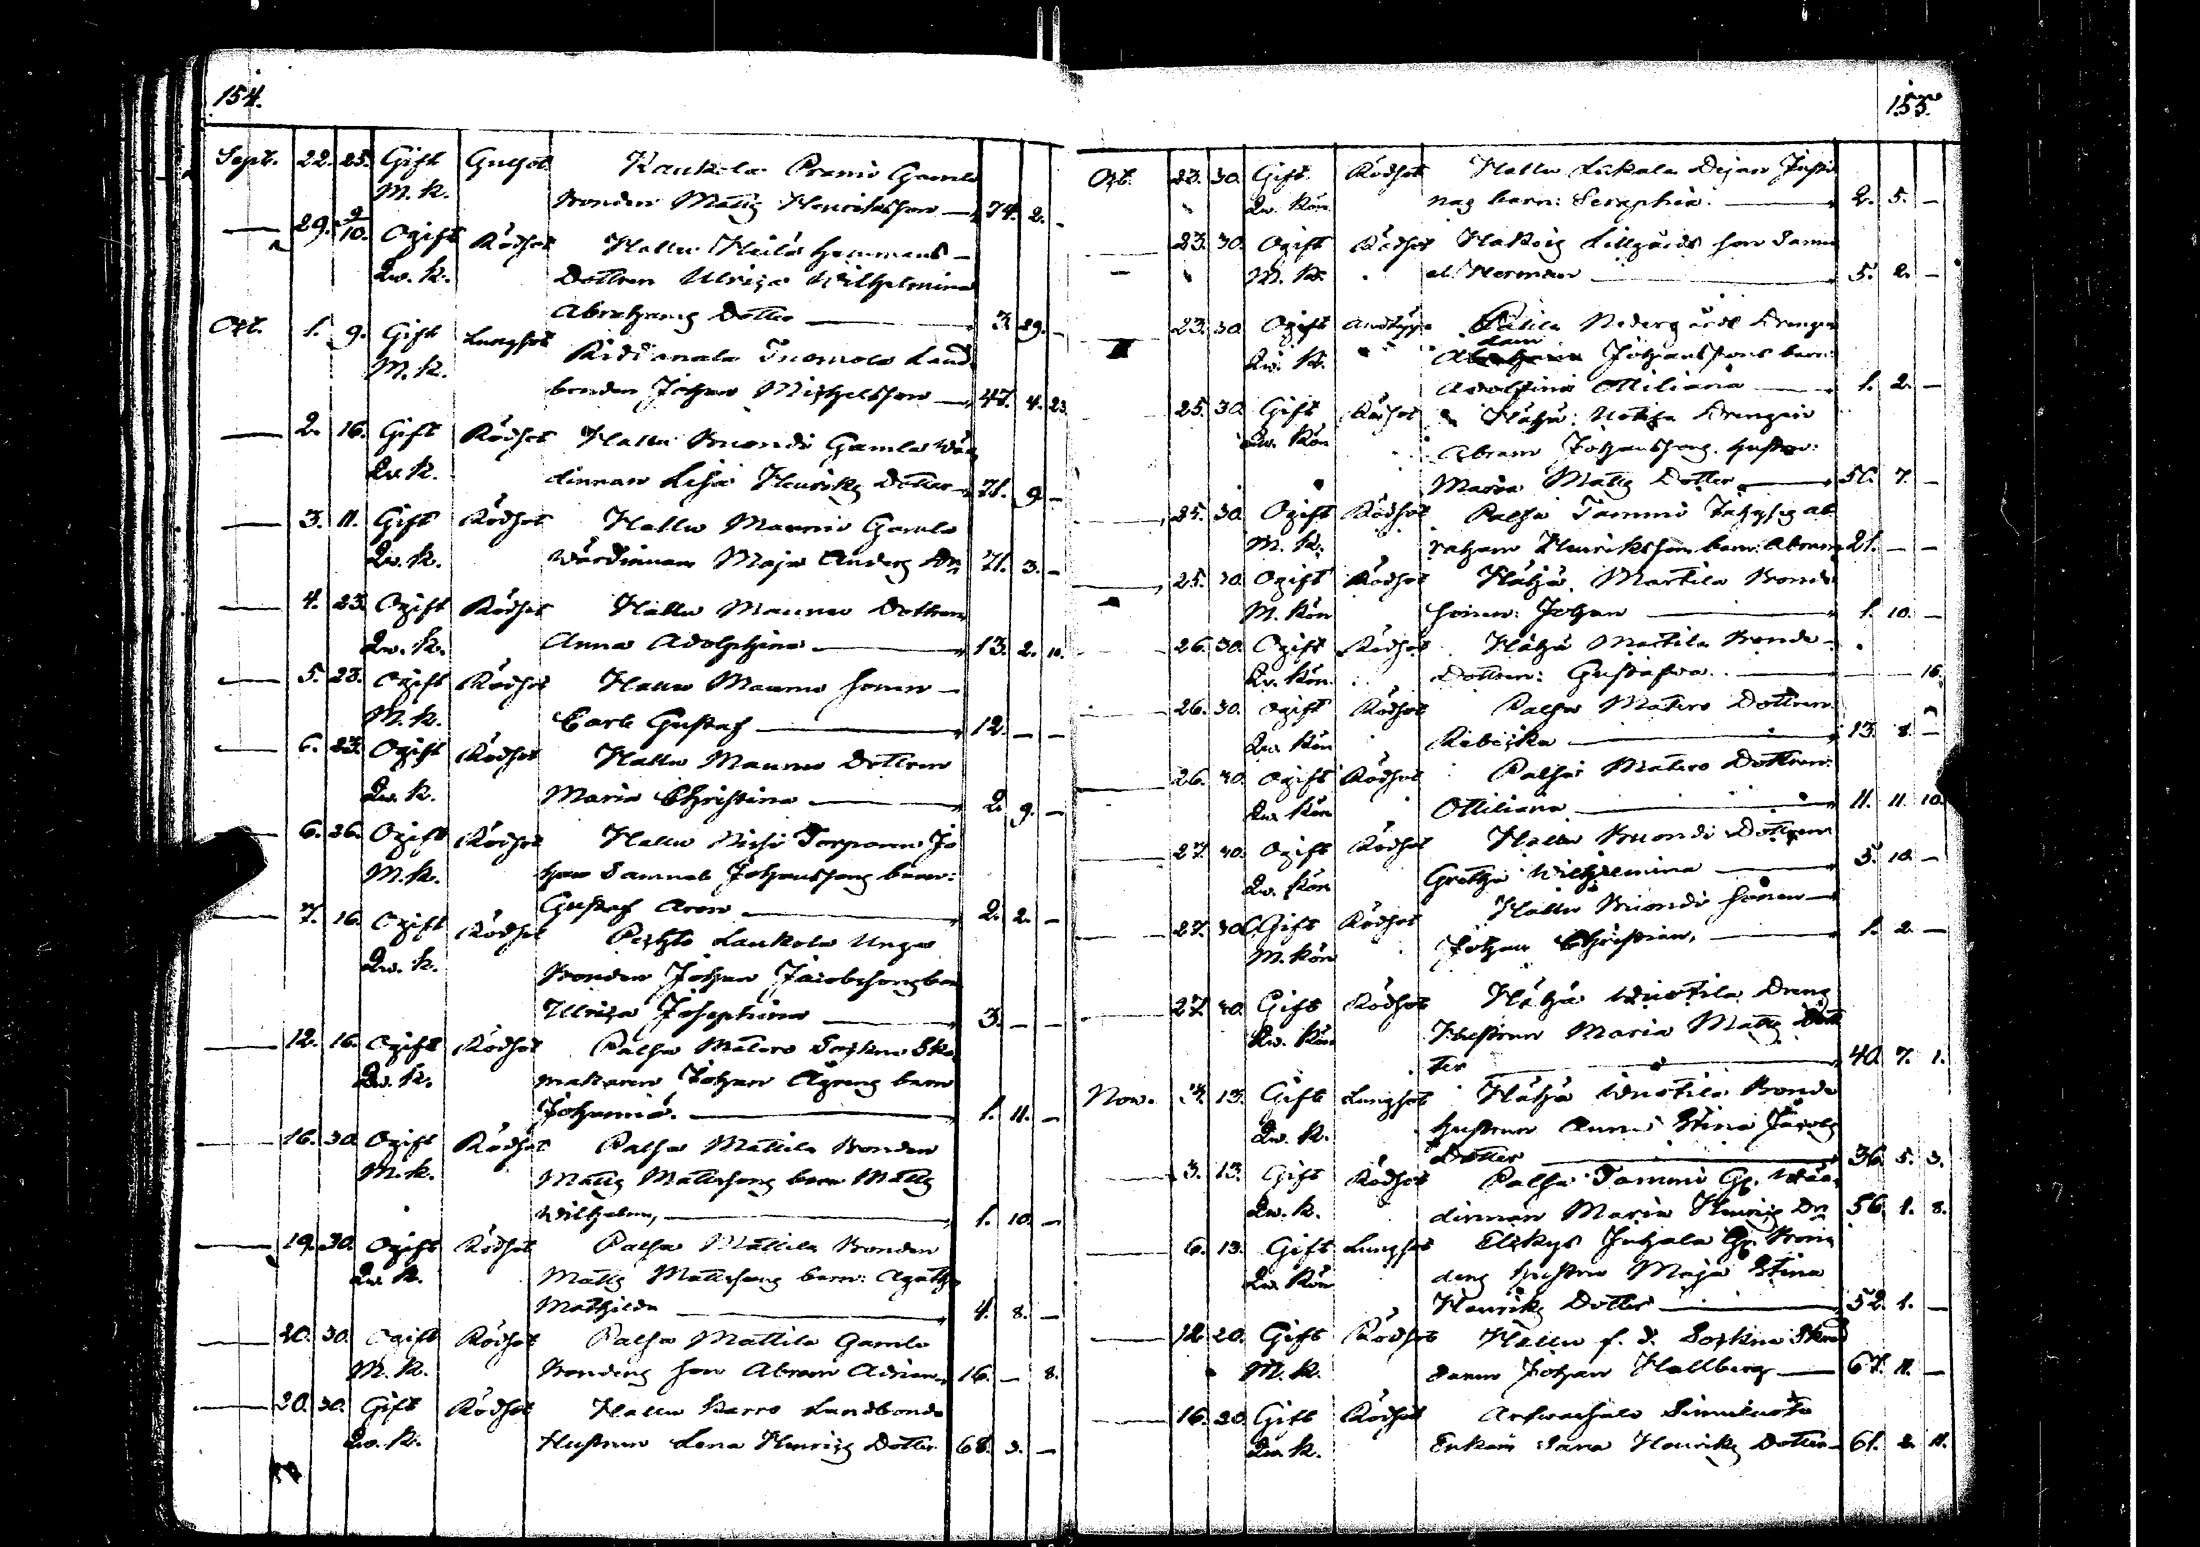 154.
Sept. 22. 25. Gift Gulsot Kaukola Prami Gamle
M. k. Bonden Matts Henriksson — 74. 2. -
— 29. 9/10. Ogift Rödsot Hallu Heilä hemmans-
Qw. k. Dottren Ulrica Wilhelmina
Abrahams Dotter — 3. 29. -
Oct. 1. 9. Gift Lungsot Ridianala Tuomola Land
M. k. bonden Johan Michelsson — 47. 4. 23
— 2. 16. Gift Rödsot Hallu Ruondi Gamla Wär
Qw. k. dinnan Lisa Henriks Dotter — 71. 9. -
— 3. 11. Gift Rödsot Hallu Maunu Gamla
Qw. k. Wärdinnan Maja Anders Dr 71. 3. -
— 4. 23. Ogift Rödsot Hallu Maunu Dottren
Qw. k. Anna Adolphina — 13. 2. 10.
— 5. 23. Ogift Rödsot Hallu Maunu Sonen —
M. k. Carl Gustaf — 12. - -
— 6. 23. Ogift Rödsot Hallu Maunu Dottren
Qw. k. Maria Christina — 2. 9. -
— 6. 26. Ogift Rödsot Hallu Torparen Jo
M. k. han Samuel Johanssons barn:
Gustaf Aron — 2. 2. -
— 7. 16. Ogift Rödsot Pechto Laukola Unga
Qw. k. Bonden Johan Jacobssons barn
Ulrica Josephina — 3. - -
— 12. 16. Ogift Rödsot Palsa Matero Sockne Sko
Qw. k. makaren Johan Ågrens barn
Johanna. — 1. 11. -
— 16. 30. Ogift Rödsot Palsa Mattila Bonden
M. k. Matts Mattssons barn Matts
Wilhelm, — 1. 10. -
— 19. 30. Ogift Rödsot Palsa Mattila Bonden
Qw. k. Matts Mattssons barn: Agatha
Mathilda — 4. 8. -
— 20. 30. Ogift Rödsot Palsa Mattila Gamle
M. k. Bondens Son Abram Adrian 16. — 8.
— 20. 30. Gift Rödsot Hallu Karro Landbonde
Qw. k. Hustrun Lena Henrics Dotter 68. 3. -
155.
Oct. 23. 30. Gift Rödsot Hallu Lukala
Qw. Kön. barn: Seraphia. — 2. 5. -
— 23. 30. Ogift Rödsot Lillgårds Son Samu
M. K. el Herman — 5. 2. -
— 23. 30. Ogift Nedergårds Drengen
Qw. K. dam Johanssons barn:
Adolfina Ottiliana — 1. 2. -
— 25. 30. Gift Rödsot Hätjä: Drengen
Qw. Kön Abram Johanssons hustru:
Maria Matts Dotter — 50. 7. -
— 25. 30. Ogift Rödsot Palsa Tammi Ab
M. K. raham Henrikssons barn: Abram 21. - -
— 25. 30. Ogift Rödsot Hätjä Martila Bonde
M. Kön Sonen: Johan — 1. 10. -
— 26. 30. Ogift Rödsot Hätjä Martila Bonde-
Qw. Kön. Dottren: Gustafva. — 16.
— 26. 30. Ogift Rödsot Palsa Matero Dottren
Qw. Kön Rebecka — 13. 8. -
— 26. 30. Ogift Rödsot Palsa Matero Dottren:
Qw. Kön Ottiliana — 11. 11. 10.
— 27. 30. Ogift Rödsot Hallu Ruondi Dottren
Qw. Kön Gretha Wilhelmina — 5. 10. -
— 27. 30. Ogift Rödsot Hallu Ruondi Sonen —
M. Kön Johan Christian, — 1. 2. -
— 27. 30. Gift Rödsot Hätjä Wuotila Dreng
Qw. Kön Hustrun Maria Matts Dot
ter — 40. 7. 1.
Now. 3. 13. Gift Lungsot Hätjä Wuotila Bonde
Qw. K. hustrun Anna Stina Jacobs
Dotter — 36. 5. 3.
— 3. 13. Gift Rödsot Palsa Tammi Gl. Wär
Qw. K. dinnan Maria Henrics Dr 56. 1. 8.
— 6. 13. Gift Lungsot Elskys Juhala Gl. Bon
Qw. Kön dens hustru Maja Stina
Henriks Dotter — 52. 1. -
— 12. 20. Gift Rödsot Hallu f. d. Sockne Skräd
M. K. daren Johan Hallberg — 67. 11. -
— 16. 20. Gift Rödsot
Qw. K. Enkan Sara Henriks Dotter — 61. 2. 11.